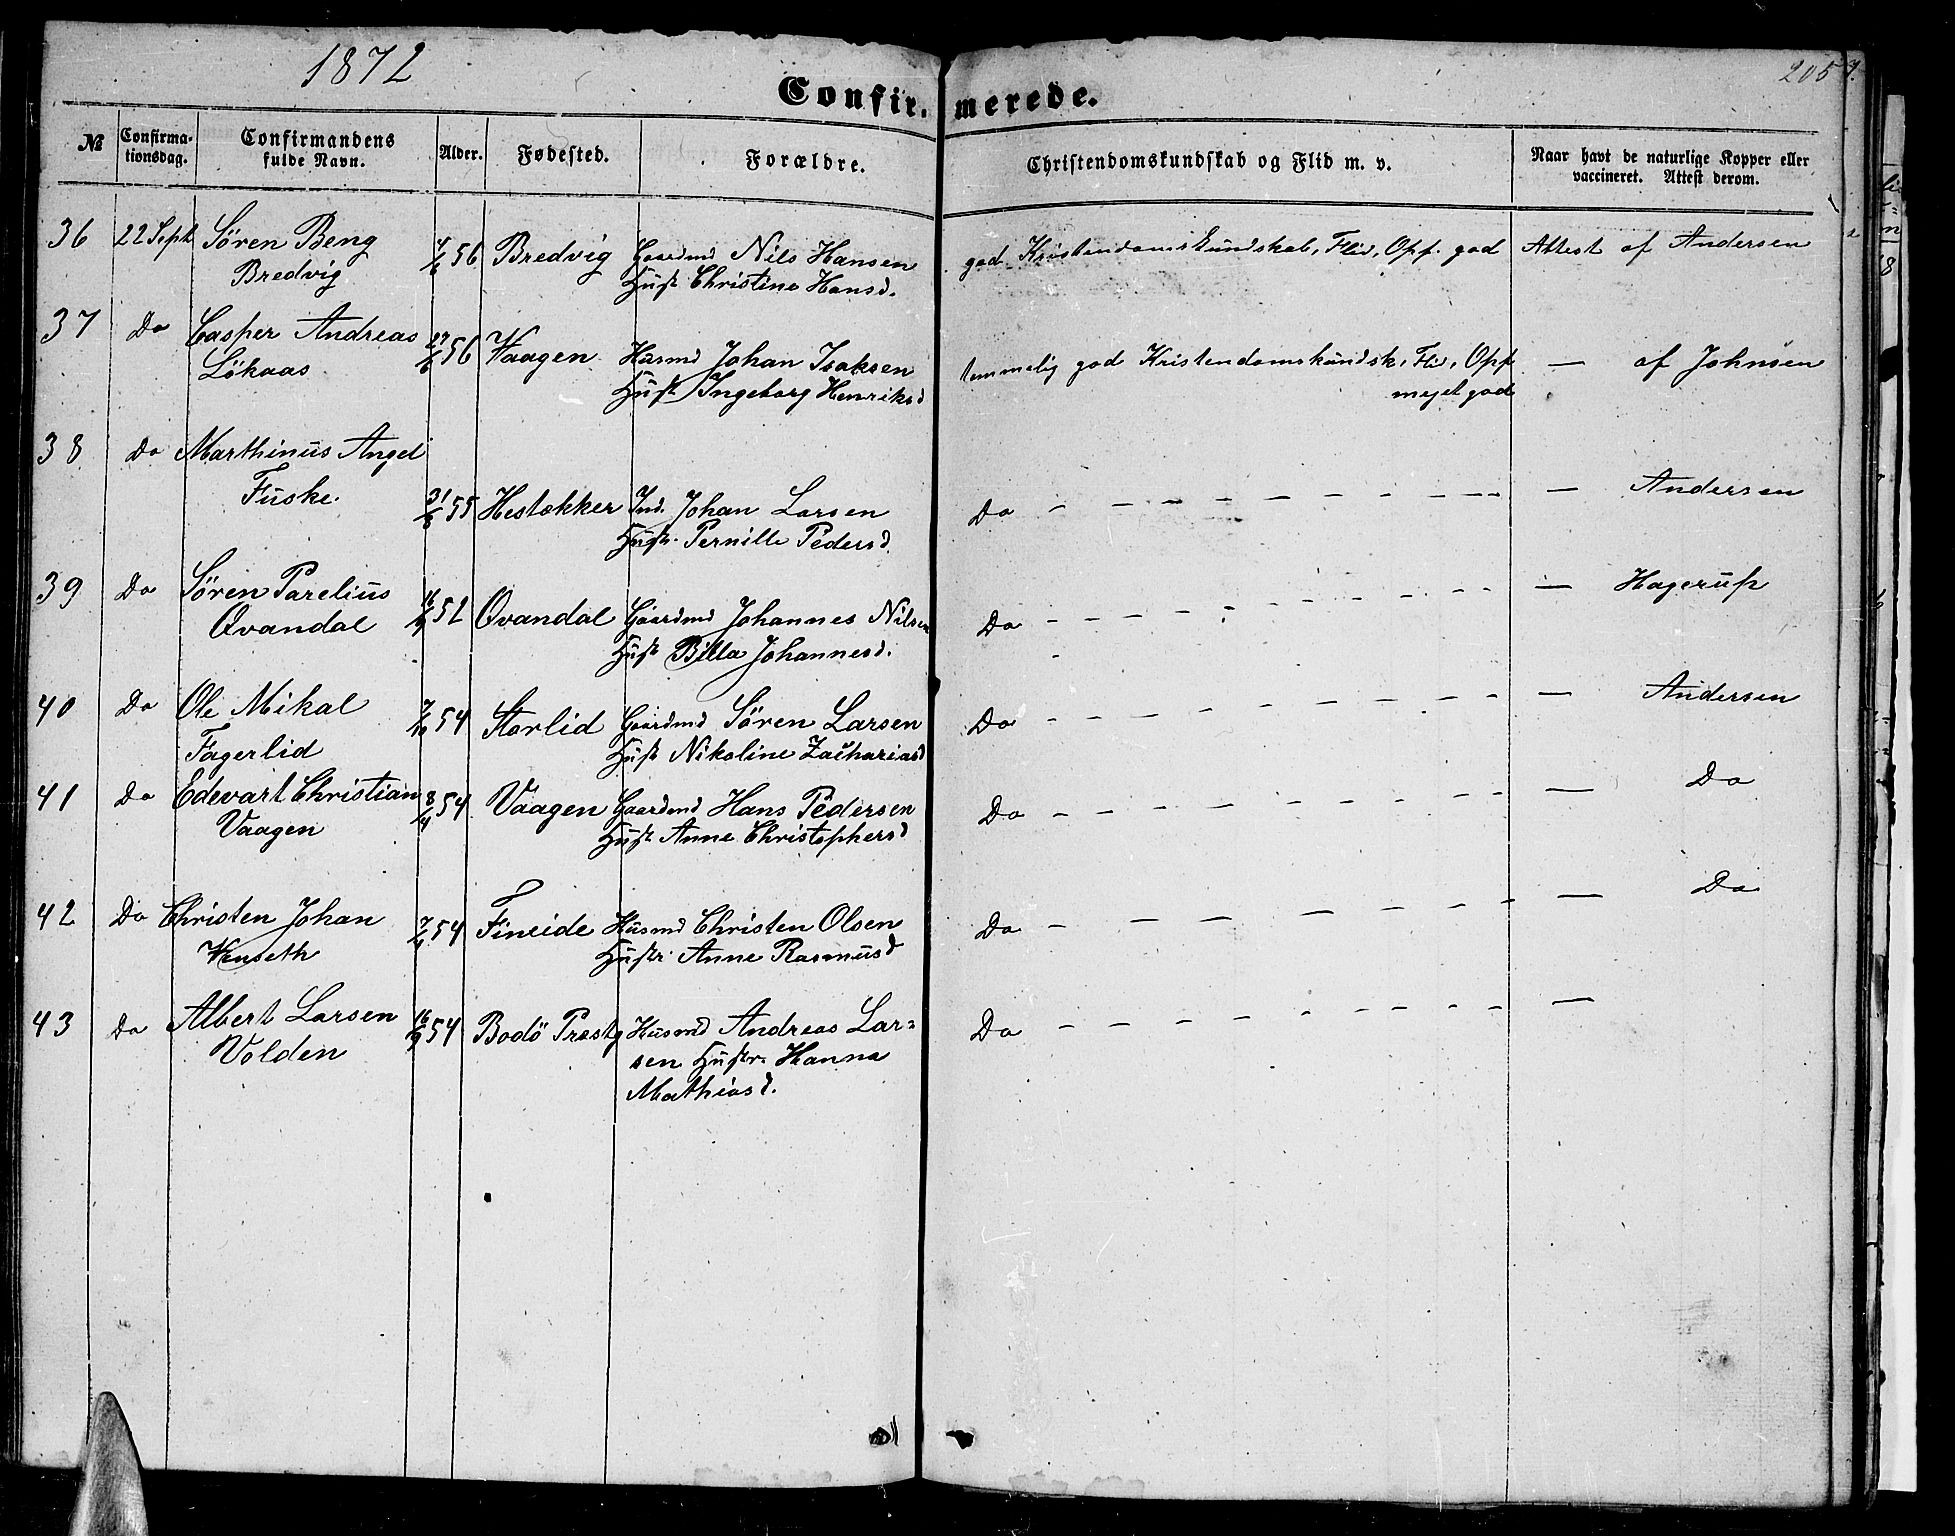 1872
205
Confirmerede.
№ Confirmationsdag. Confirmandens fulde Navn. Alder. Fødested. Forældre. Christendomskundskab og Flid m. v. Naar havt de naturlige Kopper eller vaccineret. Attest derom.
36 22 Sept Sören Beng 4/6 56 Bredvig Gaardmd Nils Hansen god Kristendomskundskab, Flid, Opf. god Attest af Andersen
Bredvig Hust Christine Hansd.
37 Do Casper Andreas 27/6 56 Vaagen Husmd Johan Isaksen temmelig god Kristendomskundsk, Flid, Opf — af Johnsen
Lökaas Hust Ingeborg Henriksd meget god
38 Do Marthinus Angel
Fuske 31/8 55 Hestekker Ind. Johan Larsen Do — Andersen
Hustr. Pernille Pedersd.
39 Do Sören Parelius 16/9 52 Øvandal Gaardmd Johannes Nilsen Do — Hagerup
Øvandal Hust Billa Johannesd.
40 Do Ole Mikal 7/10 54 Storlid Gaardmd Sören Larsen Do — Andersen
Fagerlid Hust Nikoline Zachariasd
41 Do Edevart Christian 8/4 54 Vaagen Gaardmd Hans Pedersen Do — Do
Vaagen Hust Anne Christophersd
42 Do Christen Johan 54 Fineide Husmd Christen Olsen Do — Do
Venseth Hustr. Anne Rasmusd
43 Do Albert Larsen 16/9 54 Bodö Præstg Husmd Andreas Lar= Do —
Volden sen Hustr. Hanna
Mathiasd.